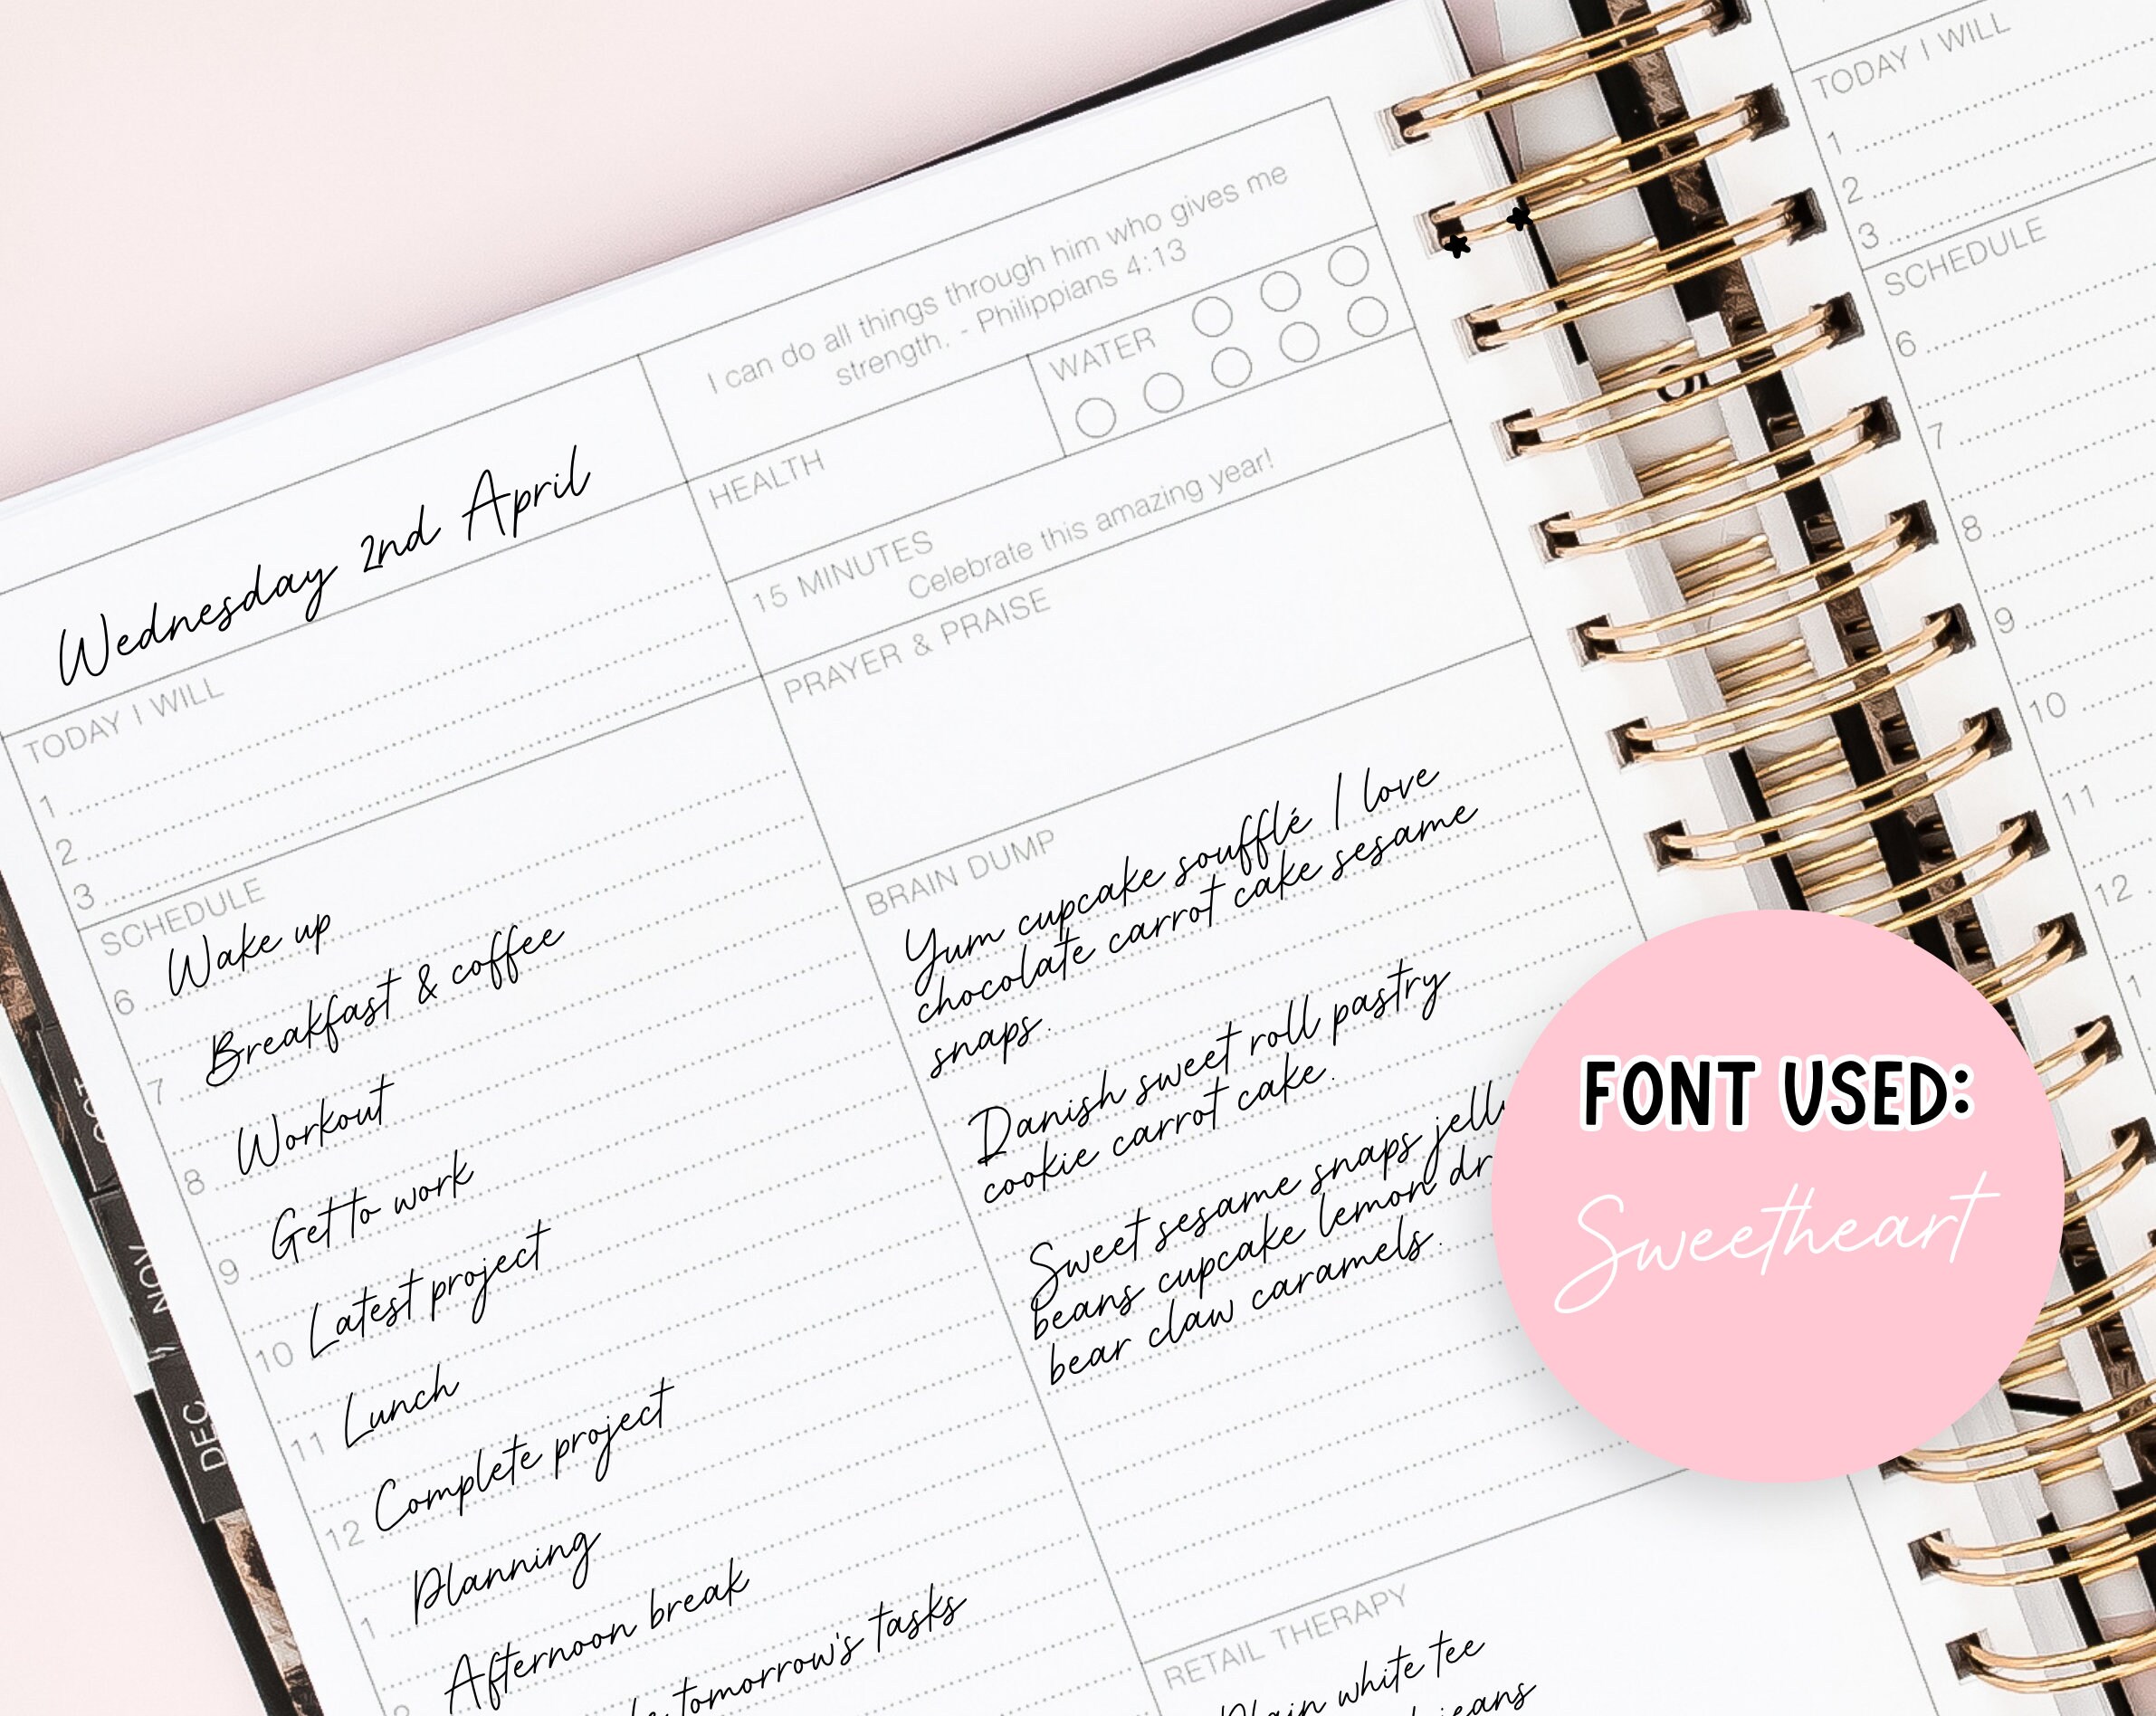 Wednesday 2nd April
I can do all things through him who gives me
strength. - Philippians 4:13
HEALTH
WATER
15 MINUTES
Celebrate this amazing year!
PRAYER & PRAISE
TODAY I WILL
1
2
3
SCHEDULE
6 Wake up
Breakfast & coffee
7
Workout
8
Get to work
9
Latest project
10
Lunch
11
Complete project
12
Planning
1
Afternoon break
tomorrow's tasks
BRAIN DUMP
Yum cupcake soufflé I love
chocolate carrot cake sesame
snaps.
Danish sweet roll pastry
cookie carrot cake.
Sweet sesame snaps
beans cupcake lemon
bear claw caramels.
RETAIL THERAPY
Plain white tee
jeans
OCT
NOV
DEC
TODAY I WILL
1
2
3
SCHEDULE
6
7
8
9
10
11
12
1
FONT USED:
Sweetheart